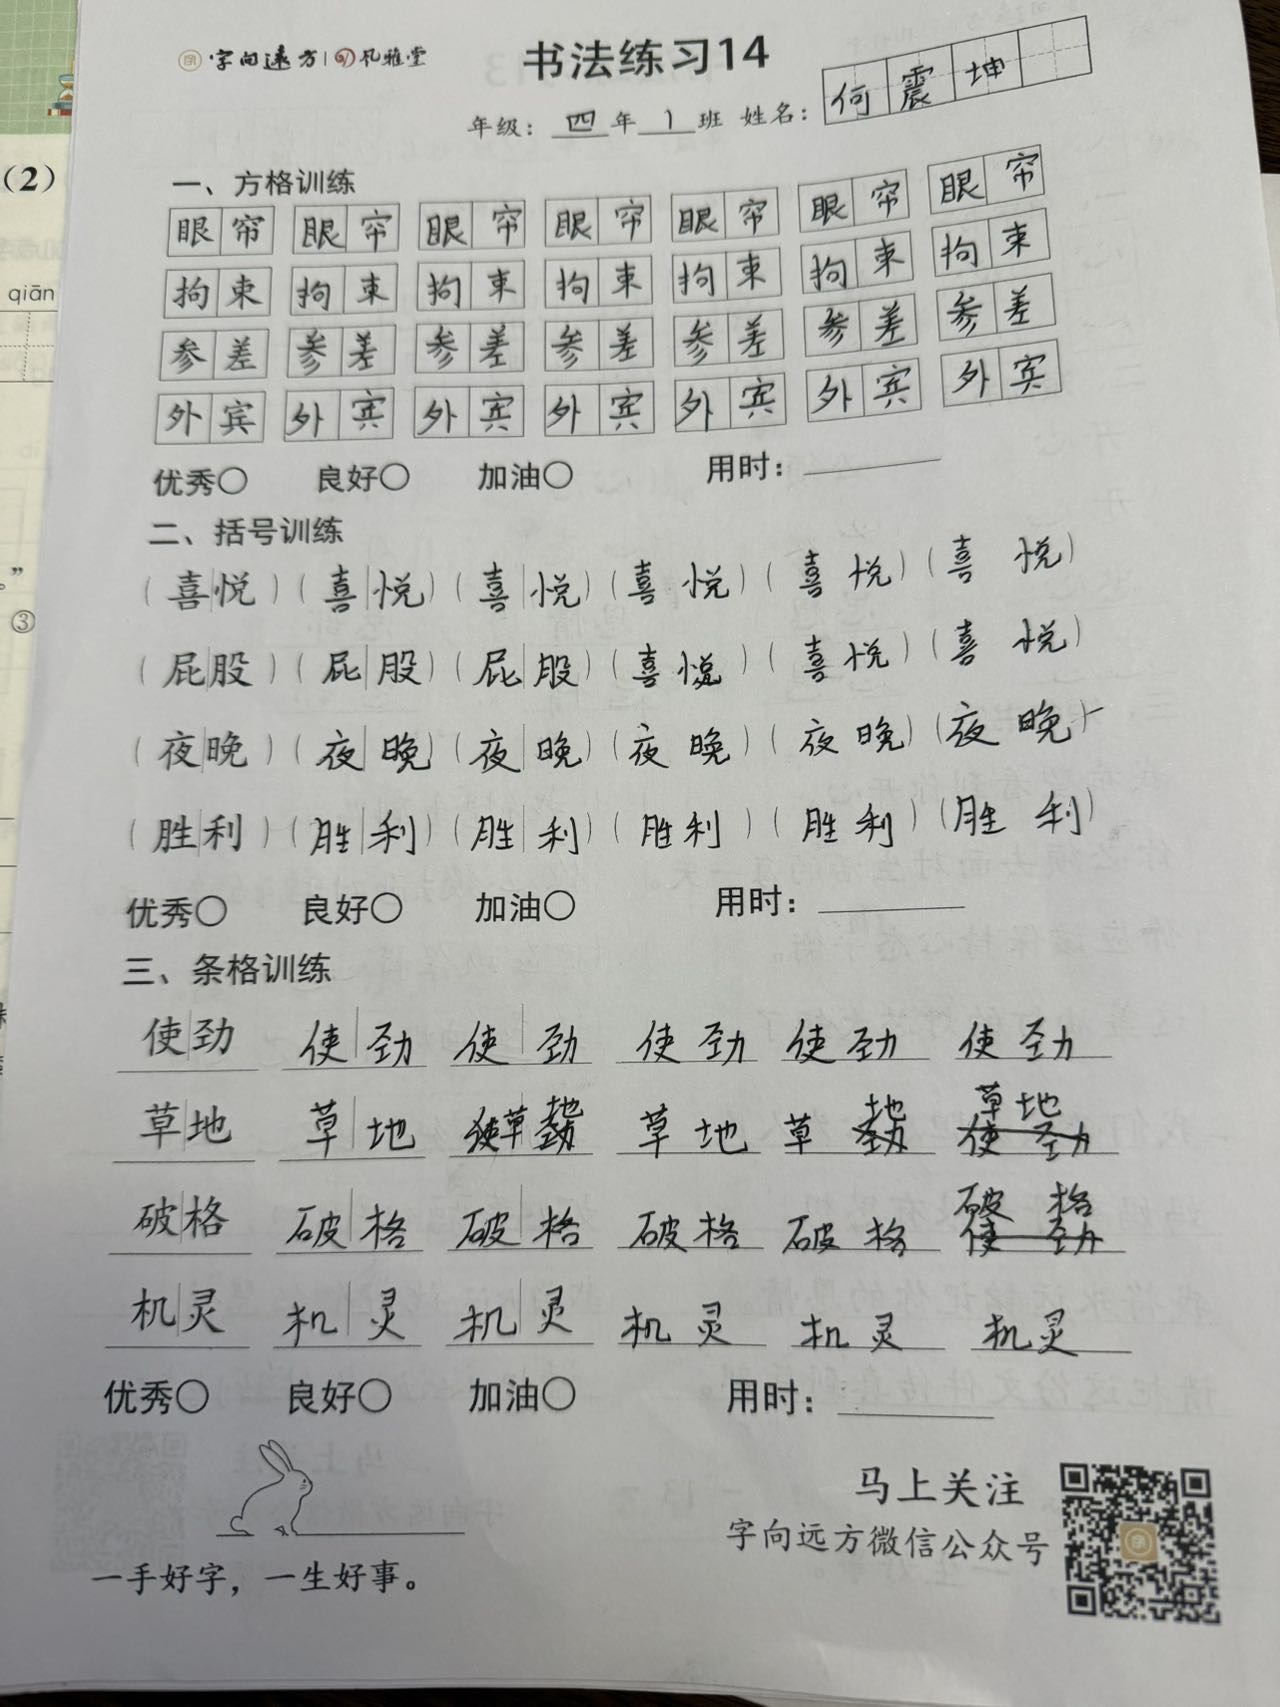 字向远方 | 风雅堂
书法练习14
年级：四年1班 姓名：何震坤
一、方格训练
眼帘 眼帘 眼帘 眼帘 眼帘 眼帘 眼帘
拘束 拘束 拘束 拘束 拘束 拘束 拘束
参差 参差 参差 参差 参差 参差 参差
外宾 外宾 外宾 外宾 外宾 外宾 外宾
优秀○ 良好○ 加油○ 用时：
二、括号训练
（喜悦）（喜悦）（喜悦）（喜悦）（喜悦）（喜悦）
（屁股）（屁股）（屁股）（喜悦）（喜悦）（喜悦）
（夜晚）（夜晚）（夜晚）（夜晚）（夜晚）（夜晚）
（胜利）（胜利）（胜利）（胜利）（胜利）（胜利）
优秀○ 良好○ 加油○ 用时：
三、条格训练
使劲 使劲 使劲 使劲 使劲 使劲
草地 草地 草地 草地 草地 草地
使劲
破格 破格 破格 破格 破格 破格
使劲
机灵 机灵 机灵 机灵 机灵 机灵
优秀○ 良好○ 加油○ 用时：
马上关注
字向远方微信公众号
一手好字，一生好事。
（2）
qiān
。”
③